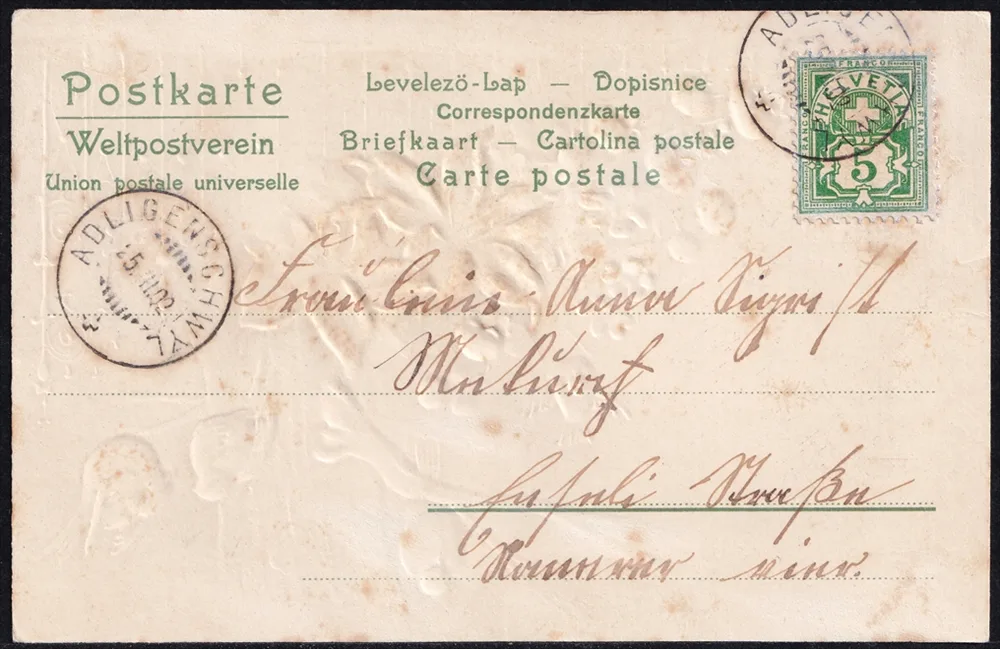 Postkarte
Weltpostverein
Union postale universelle
Levelező-Lap — Dopisnice
Correspondenzkarte
Briefkaart — Cartolina postale
Carte postale
ADLIGE
FRANCO
FRANCO
FRANCO
HELVETIA
5
ADLIGENSCHWYL
25. 02
Fräulein Anna Sigrist
Straße
vier.